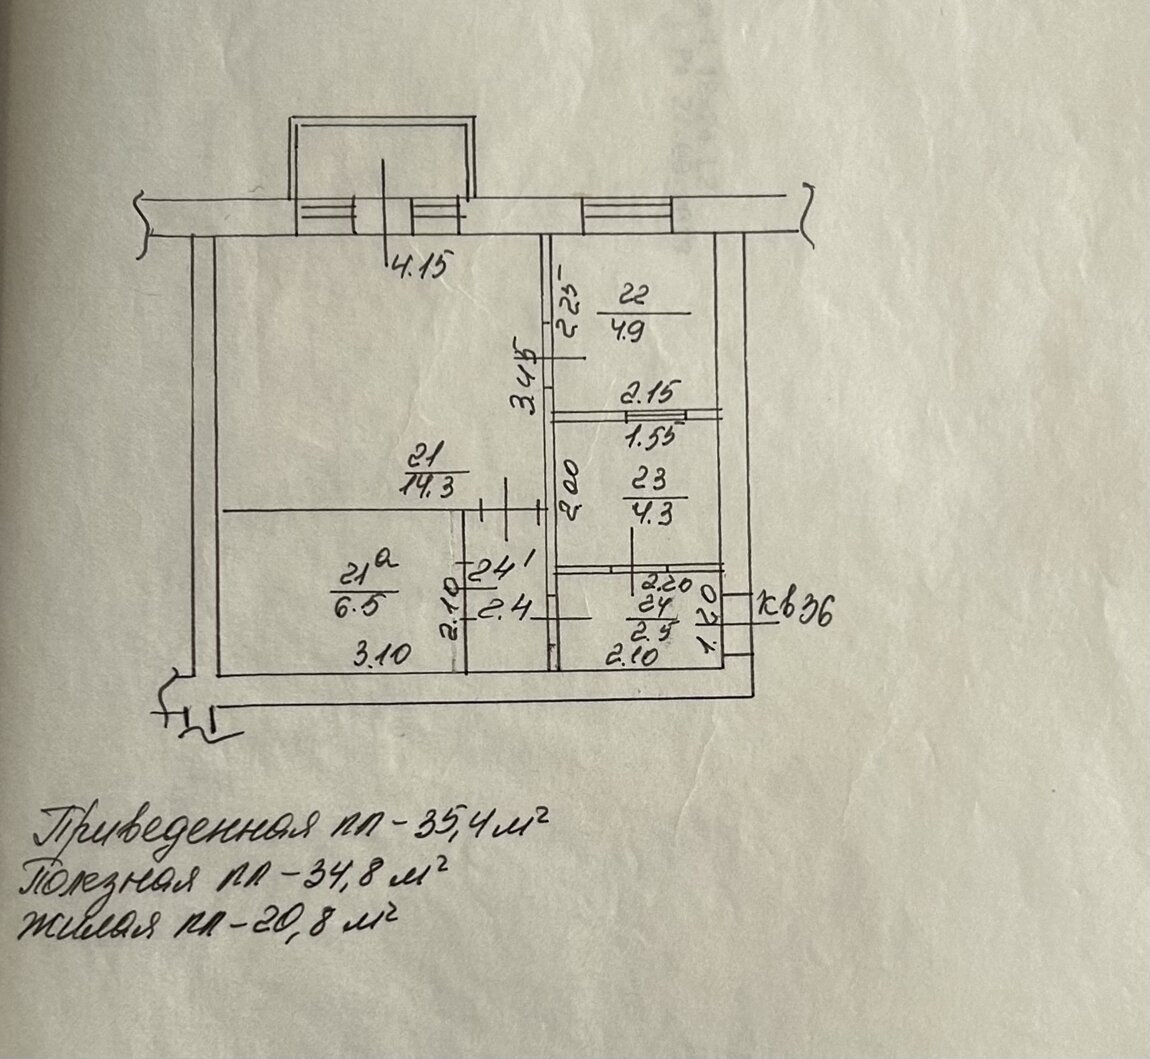 4.15
2.25
22
4.9
3.45
2.15
1.55
21
14.3
2.00
23
4.3
21а
6.5
2.10
24'
2.4
2.20
24
2.5
1.20
кв 36
3.10
2.10
Приведенная пл - 35,4 м²
Полезная пл - 34,8 м²
Жилая пл - 20,8 м²